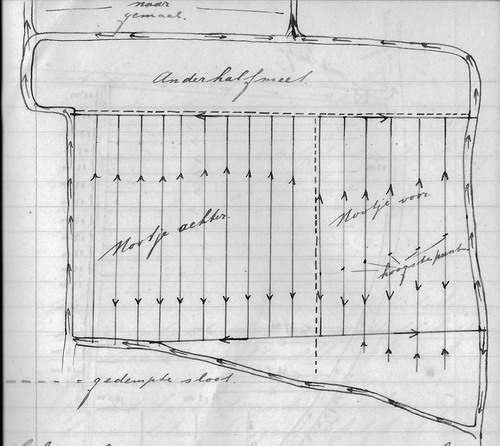 naar
gemaal.
Anderhalfmeet.
Nootje achter.
Nootje voor
hoogste punt
= gedempte sloot.